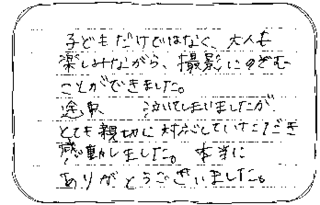 子どもだけではなく、大人も
楽しみながら、撮影にのぞむ
ことができました。
途中 泣いてしまいましたが、
とても親切に対応していただき
感動しました。本当に
ありがとうございました。